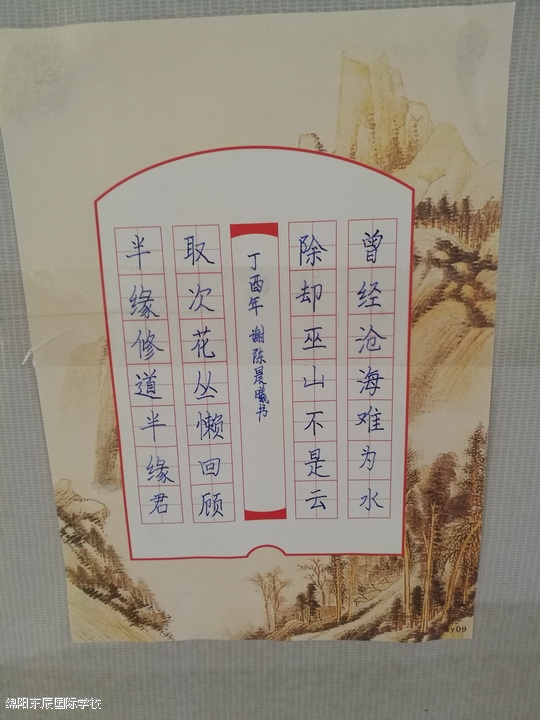 曾经沧海难为水
除却巫山不是云
丁酉年 谢陈晨曦书
取次花丛懒回顾
半缘修道半缘君
y09
绵阳东辰国际学校